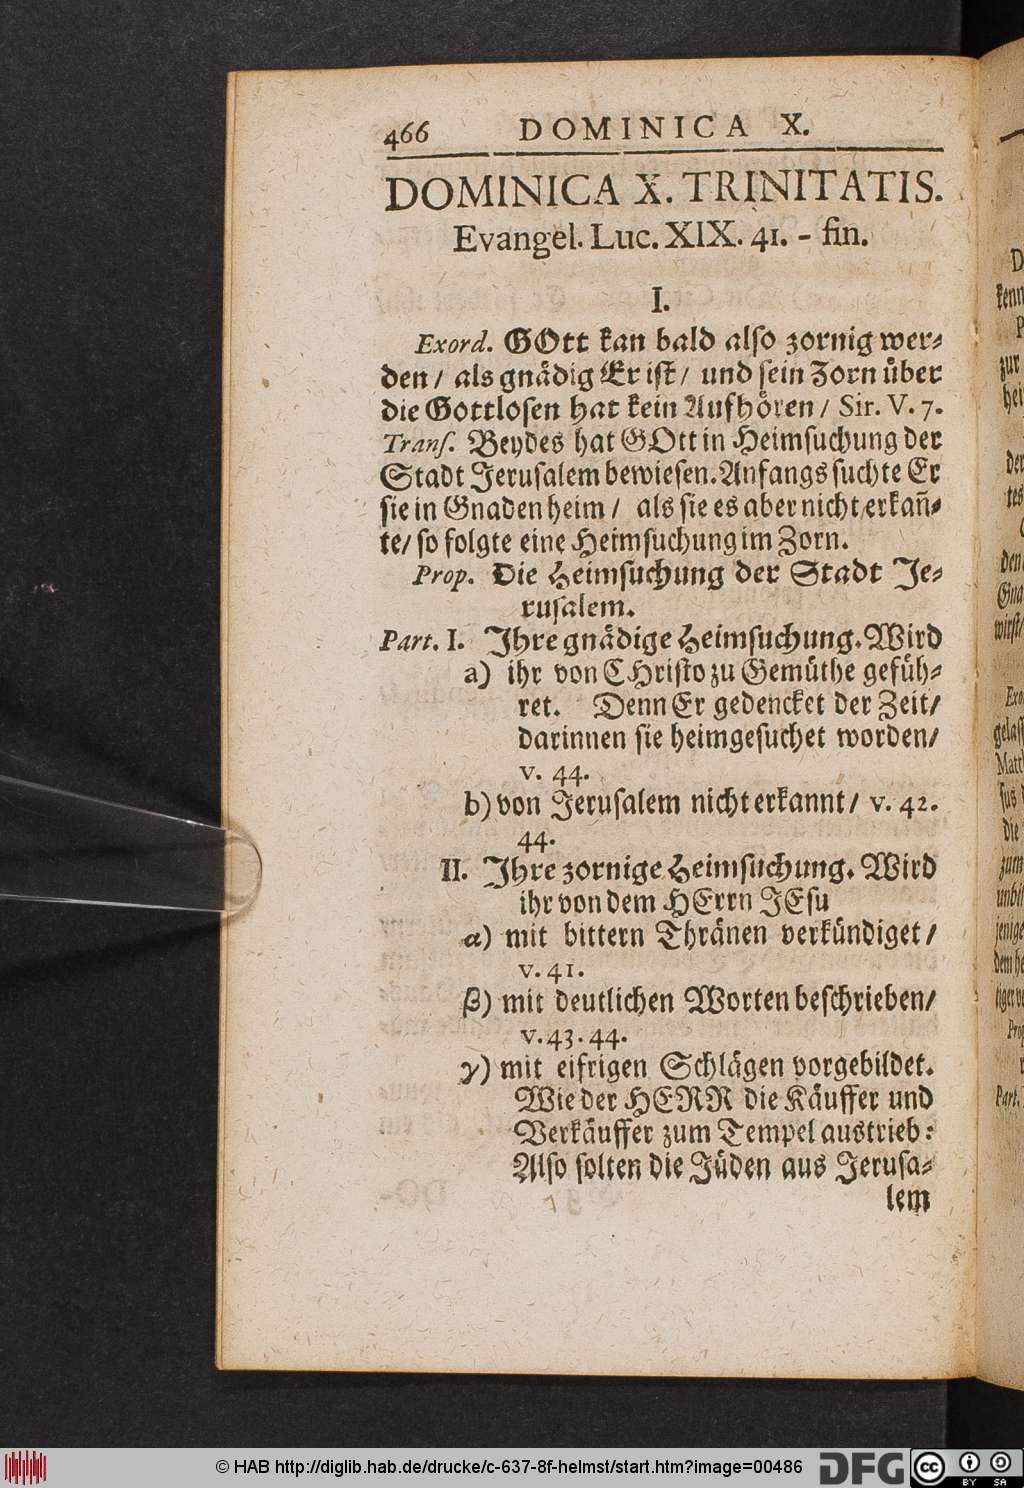 466 DOMINICA X.
DOMINICA X. TRINITATIS.
Evangel. Luc. XIX. 41. - fin.
I.
Exord. GOtt kan bald also zornig wer-
den / als gnädig Er ist / und sein Zorn über
die Gottlosen hat kein Aufhören / Sir. V. 7.
Trans. Beydes hat GOtt in Heimsuchung der
Stadt Jerusalem bewiesen. Anfangs suchte Er
sie in Gnaden heim / als sie es aber nicht erkañ-
te / so folgte eine Heimsuchung im Zorn.
Prop. Die Heimsuchung der Stadt Je-
rusalem.
Part. I. Jhre gnädige Heimsuchung. Wird
a) ihr von CHristo zu Gemüthe gefüh-
ret. Denn Er gedencket der Zeit /
darinnen sie heimgesuchet worden /
v. 44.
b) von Jerusalem nicht erkannt / v. 42.
44.
II. Jhre zornige Heimsuchung. Wird
ihr von dem HErrn JEsu
α) mit bittern Thränen verkündiget /
v. 41.
β) mit deutlichen Worten beschrieben /
v. 43. 44.
γ) mit eifrigen Schlägen vorgebildet.
Wie der HERR die Käuffer und
Verkäuffer zum Tempel austrieb:
Also solten die Jüden aus Jerusa-
lem
© HAB http://diglib.hab.de/drucke/c-637-8f-helmst/start.htm?image=00486
DFG
cc
BY SA